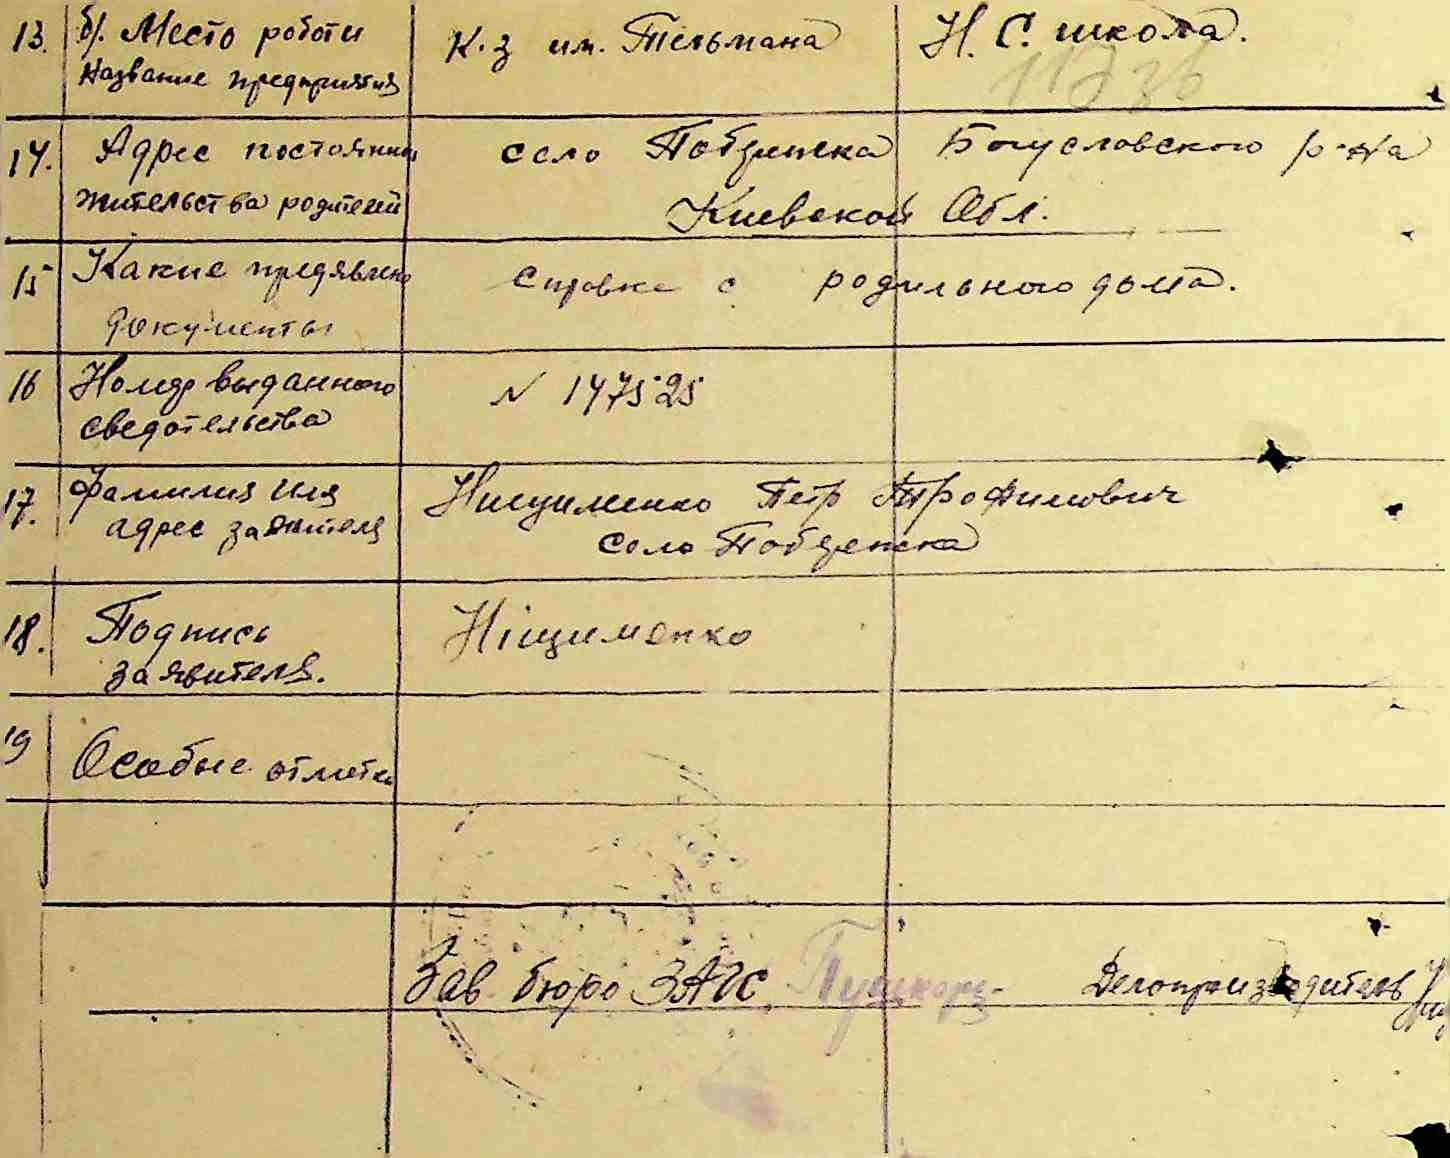 13. б/. Место роботи К-з им. Тельмана Н. С. школа.
Название предприятия
14. Адрес постоянно село Побережка Богусловского р-на
жительства родителей Киевской Обл.
15 Какие предявлено справка с родильного дома.
документы
16 Номер выданного N 147525
сведотельства
17. Фамилия имя Нищименко Петр Трофимович
адрес заявителя село Побережка
18. Подпись Ніщименко
заявителя.
19 Особые отметки
Зав. бюро ЗАГС Делопроизводитель